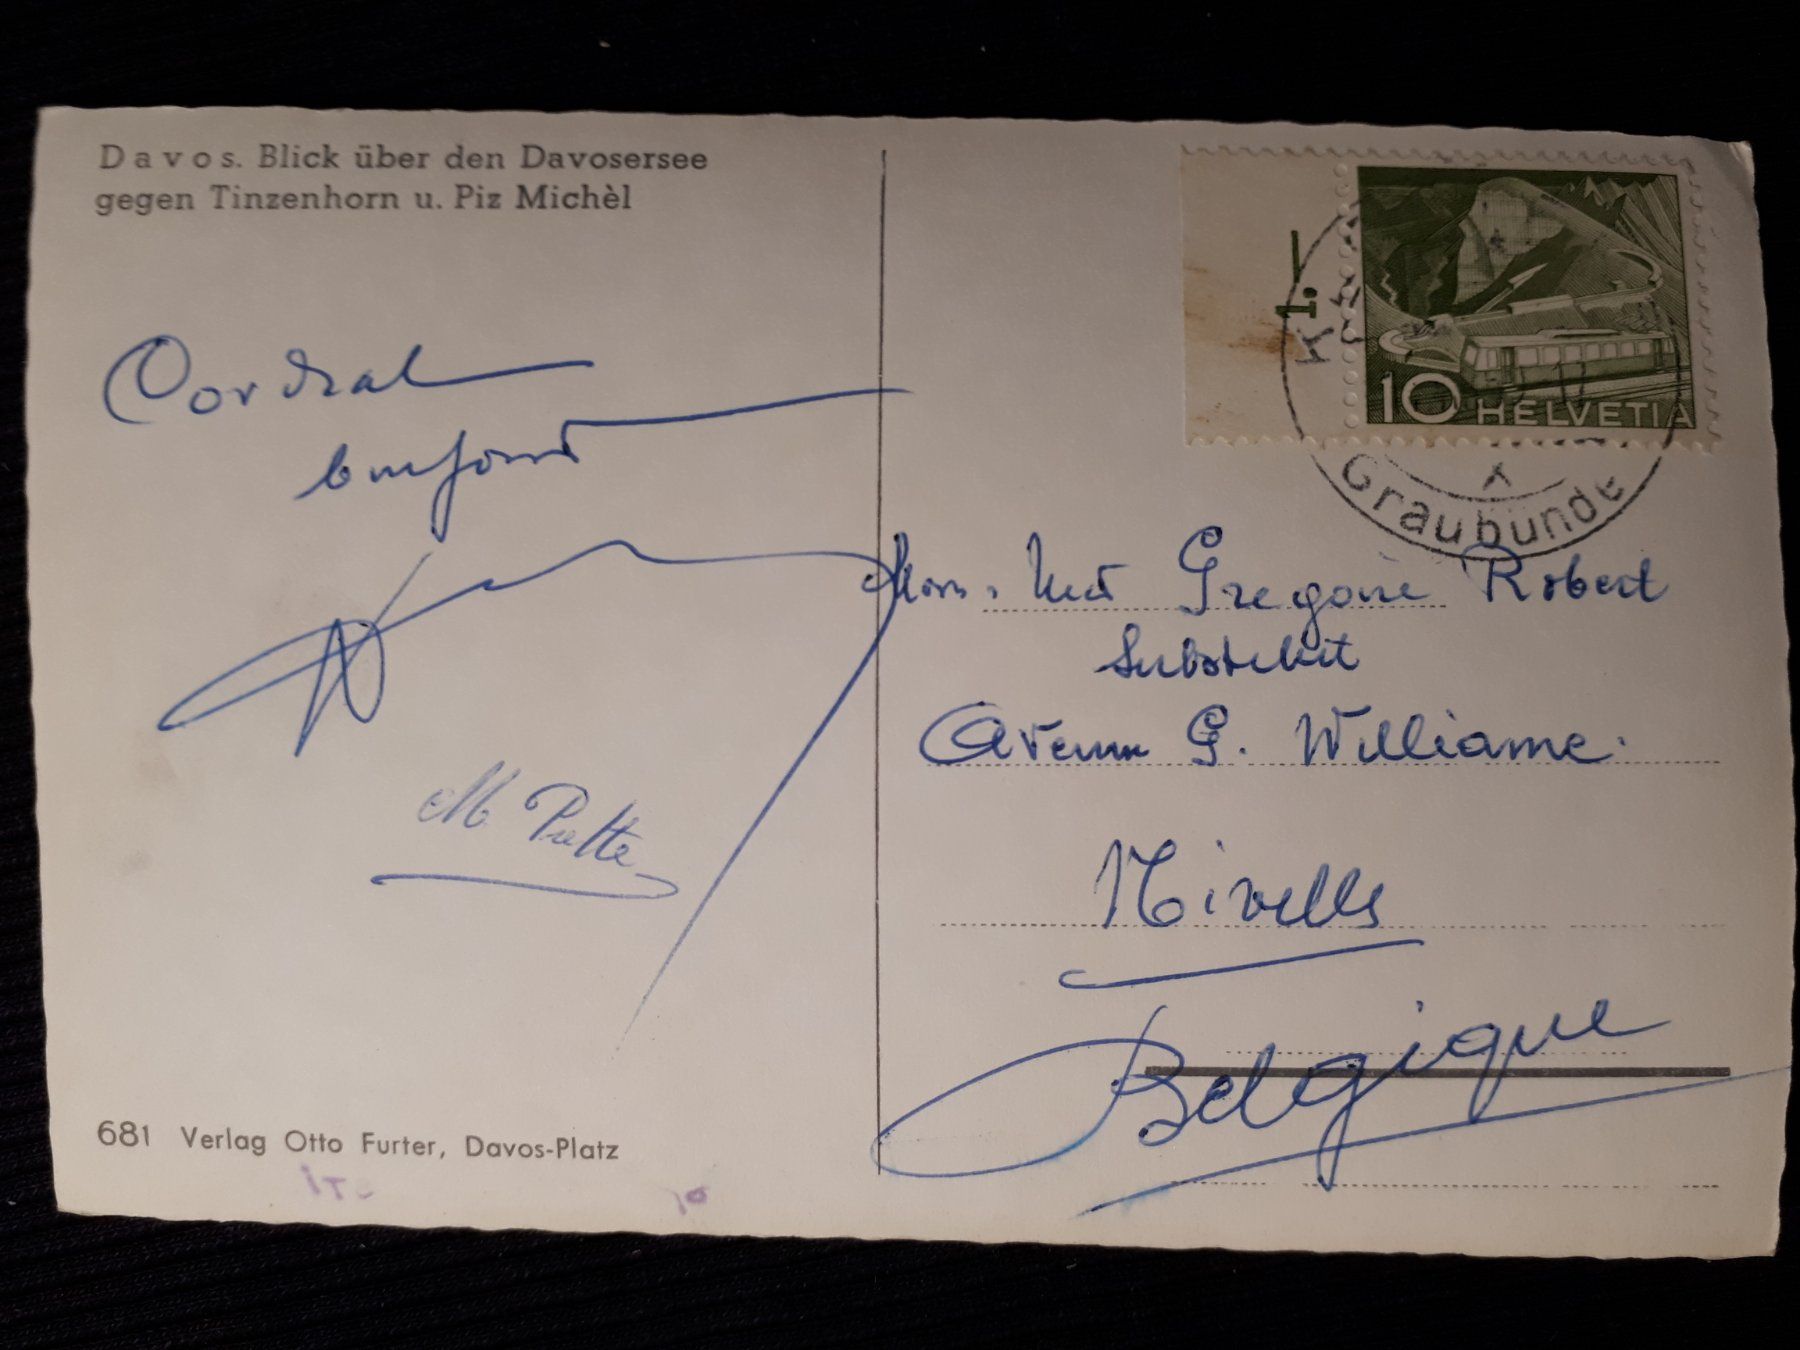 Davos. Blick über den Davosersee
gegen Tinzenhorn u. Piz Michèl
Cordial
M. Prette
681 Verlag Otto Furter, Davos-Platz
1.
10 HELVETIA
Graubünden
Mons. Mad Gregoire Robert
Substitut
Avenue G. Williame.
Nivelles
Belgique